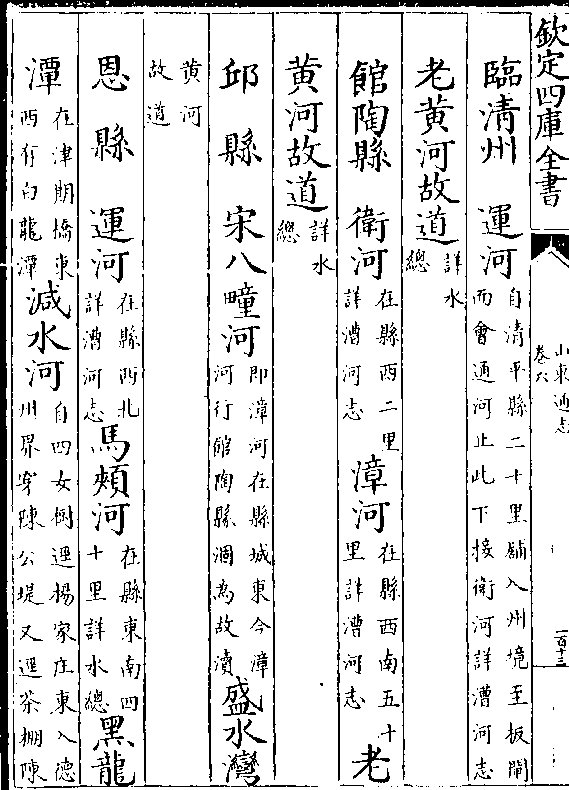 欽定四庫全書
山東通志
卷六
一百十三
臨清州　運河自清平縣二十里鋪入州境至板閘而會通河止此下接衛河詳漕河志
老黄河故道詳水總
館陶縣　衛河在縣西二里詳漕河志漳河在縣西南五十里詳漕河志老
黄河故道詳水總
邱縣　宋八疃河即漳河在縣城東今漳河行館陶縣涸為故瀆盛水灣
黄河故道
恩縣　運河在縣西北詳漕河志馬頰河在縣東南四十里詳水總黑龍
潭在津期橋東西有白龍潭減水河自四女樹逕楊家庄東入德州界穿陳公堤又逕茶棚陳